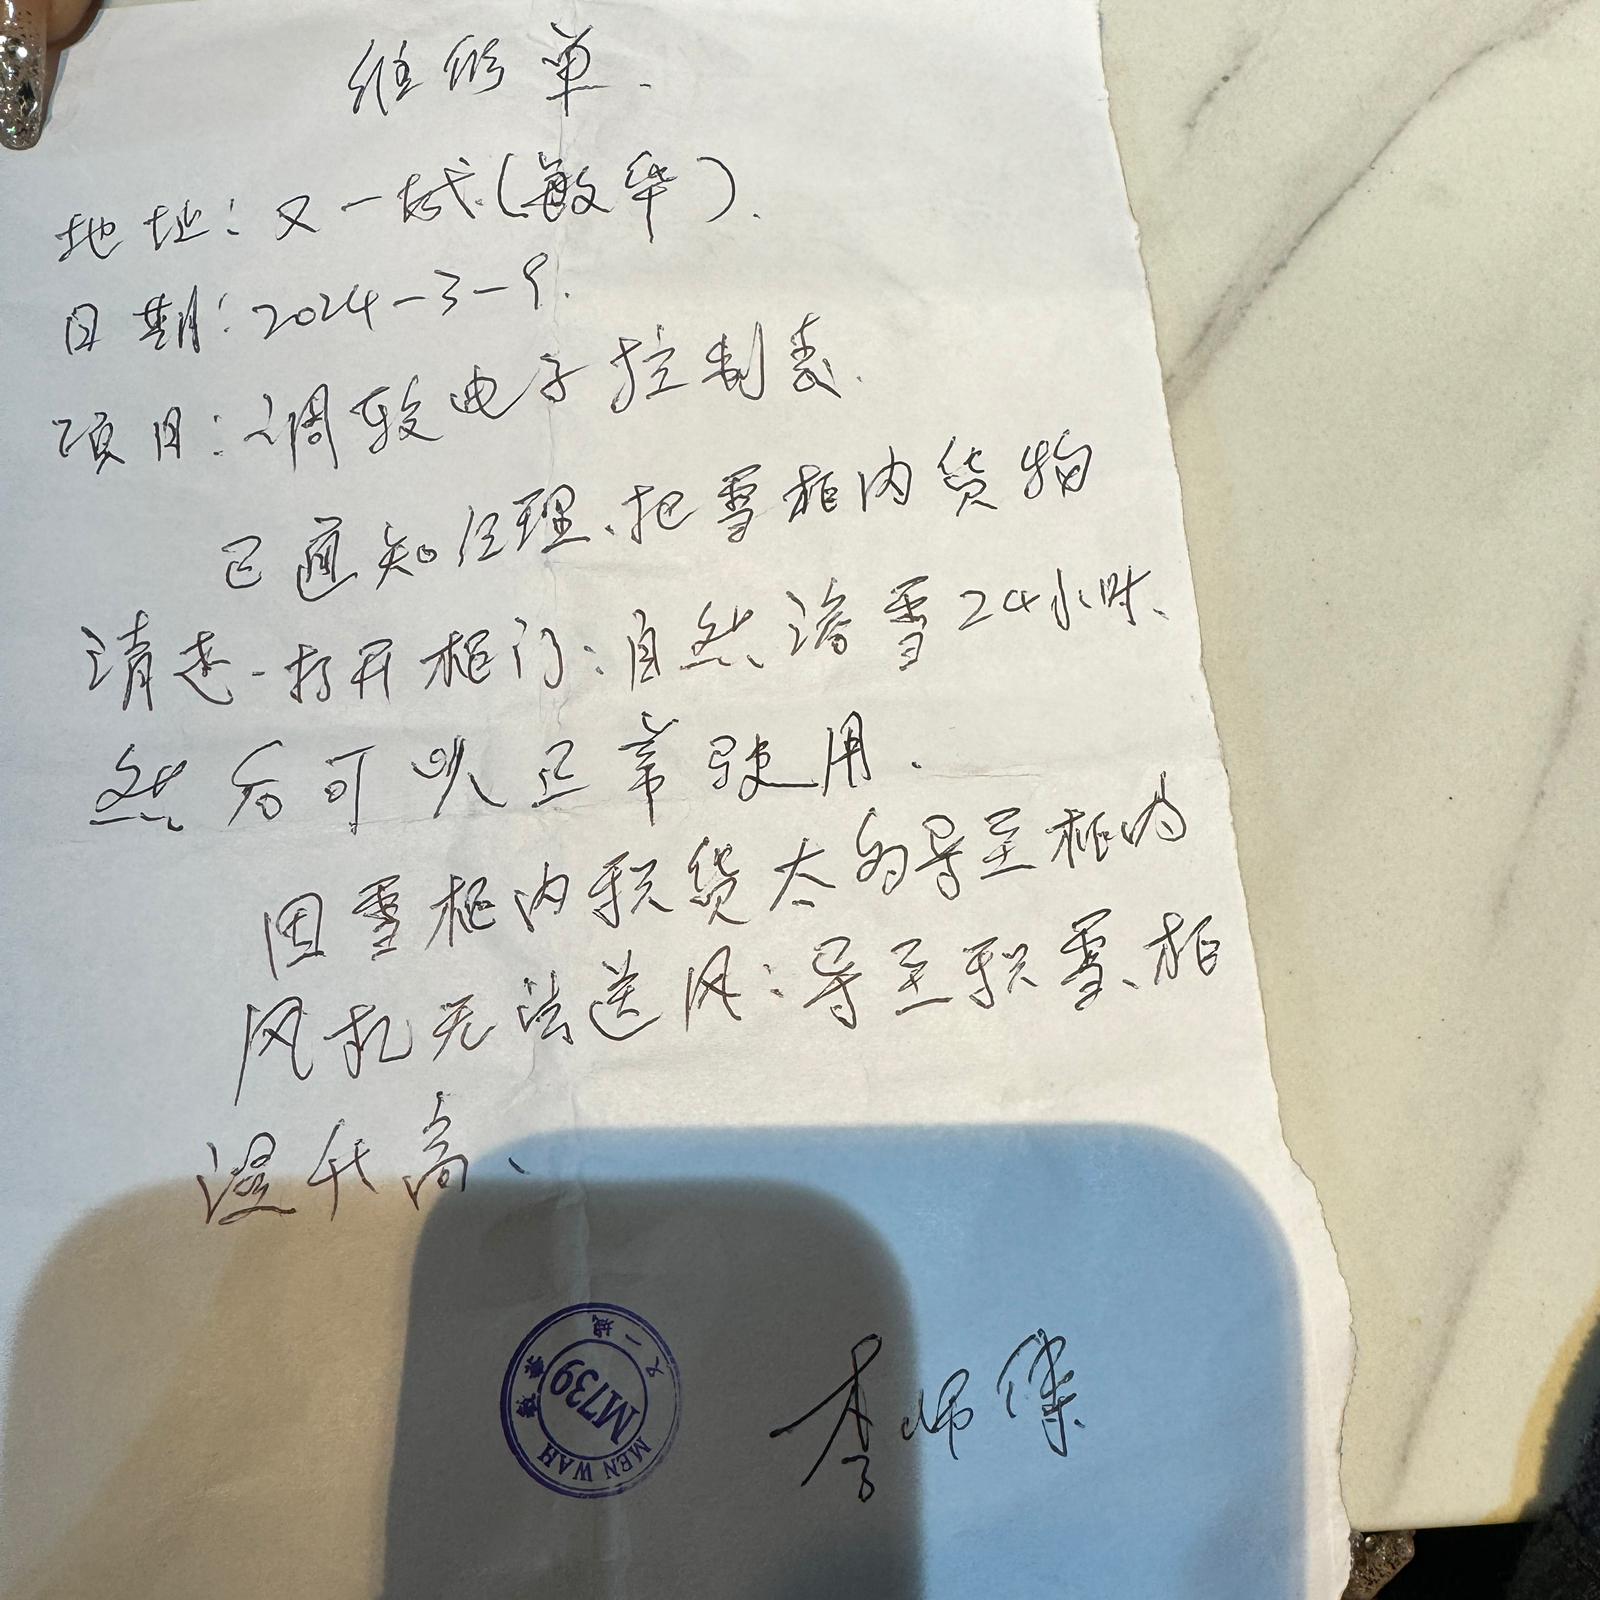 维修单.
地址:又一城(敏华).
日期:2024-3-9.
项目:调较电子控制表.
已通知经理、把雪柜内货物
清走-打开柜门:自然溶雪24小时、
然后可以正常使用.
因雪柜内积货太多导至柜内
风扎无法送风:导至积雪、柜
温升高、
敏華 又一城
M1739
MEN WAH
李师傅